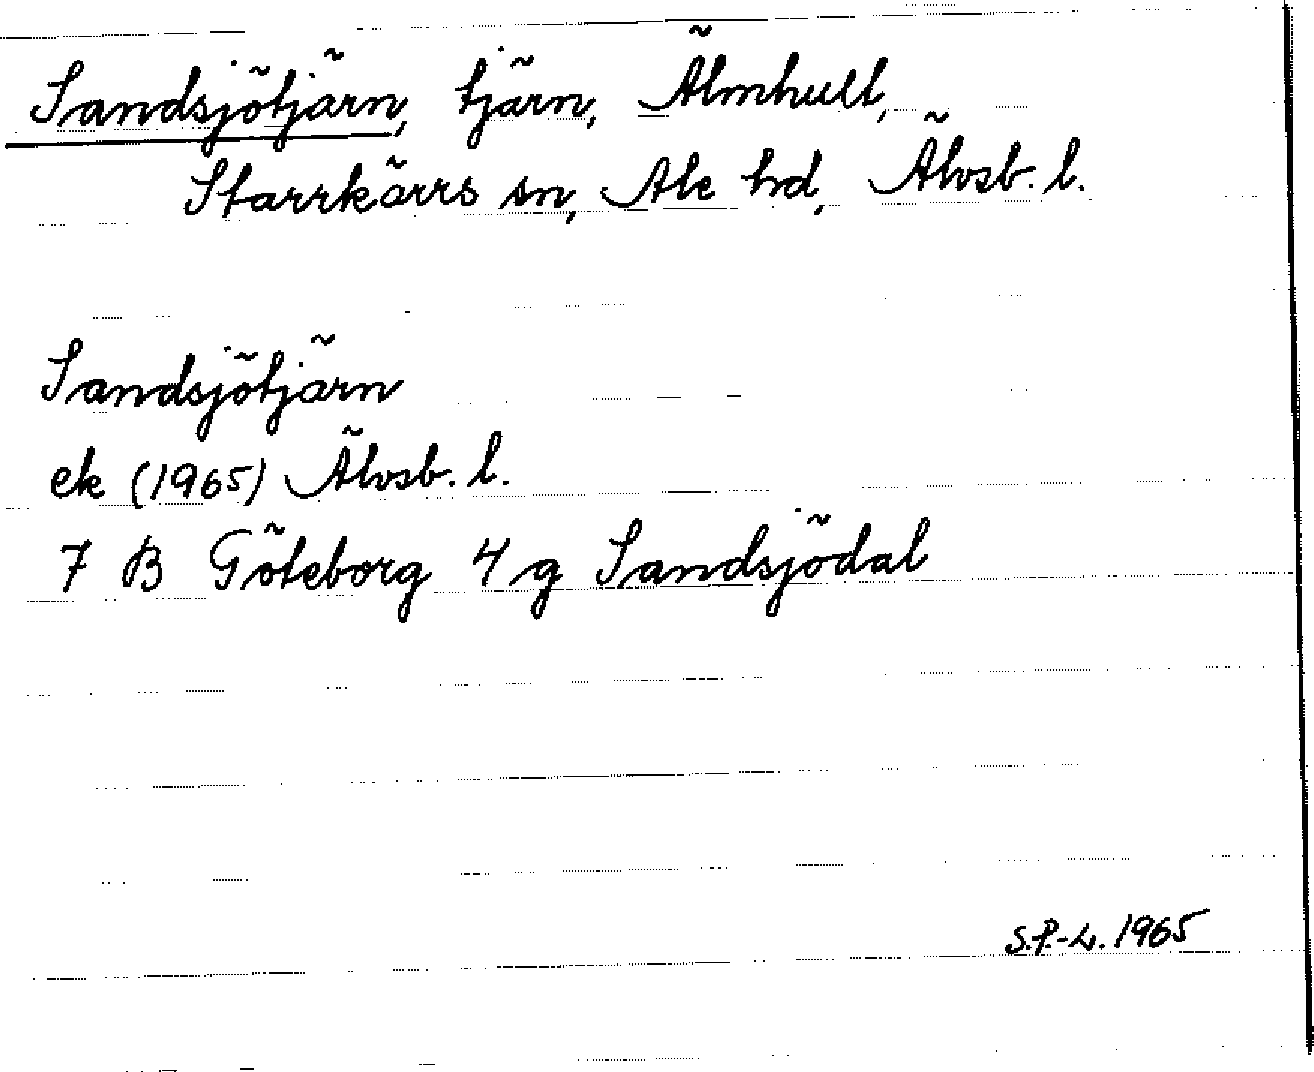 Sandsjötjärn, tjärn, Älmhult,
Starrkärrs sn, Ale hd, Älvsb. l.
Sandsjötjärn
ek (1965) Älvsb. l.
7 B Göteborg 4 g Sandsjödal
S.P.-L. 1965